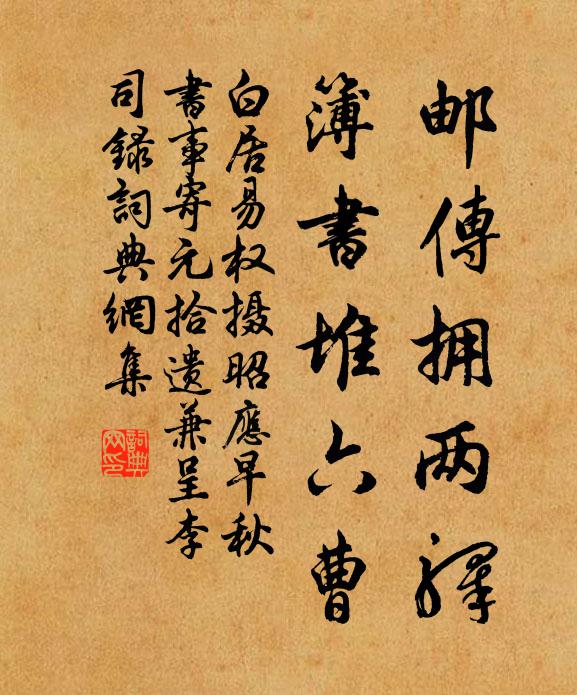 邮傳拥两驛
簿書堆六曹
白居易权摄昭應早秋
書事寄元拾遗兼呈李
司録詞典網集
詞典网印